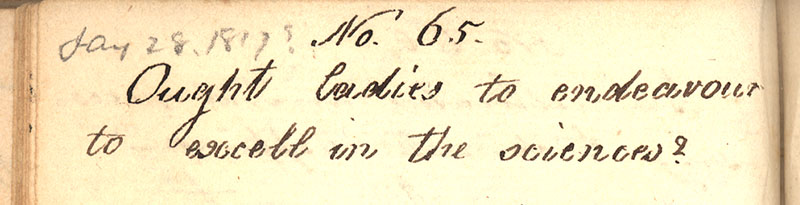 Jany 28. 1817? No. 65.
Ought ladies to endeavour
to excell in the sciences?